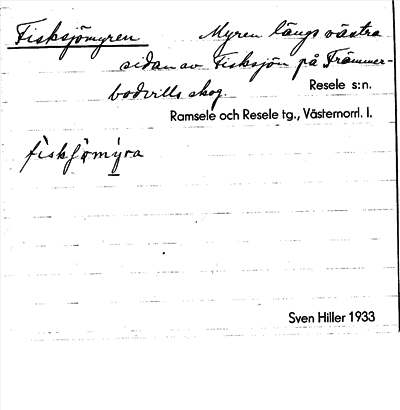 Fisksjömyren Myren längs västra
sidan av Fisksjön på Främmer-
bodvills skog. Resele s:n.
Ramsele och Resele tg., Västernorrl. l.
fiskʃömýra
Sven Hiller 1933